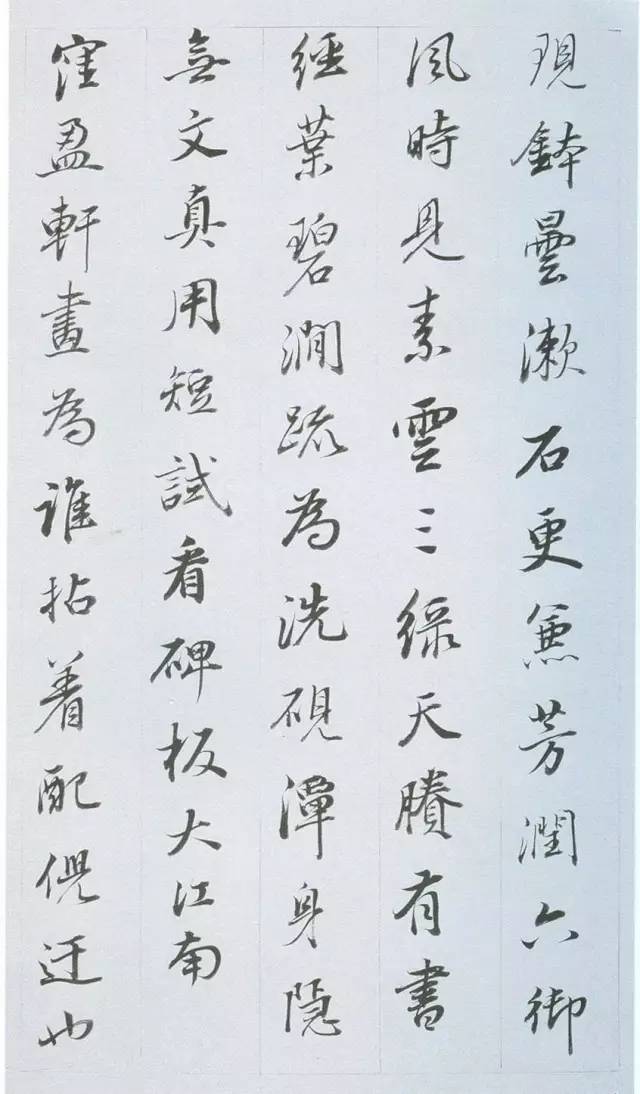 現鉢曇漱石更兼芳潤六御
風時見素雲三綠天賸有書
經葉碧澗疏為洗硯潭身隱
無文真用短試看碑板大江南
窪盈軒畫為誰拈着配倪迂也